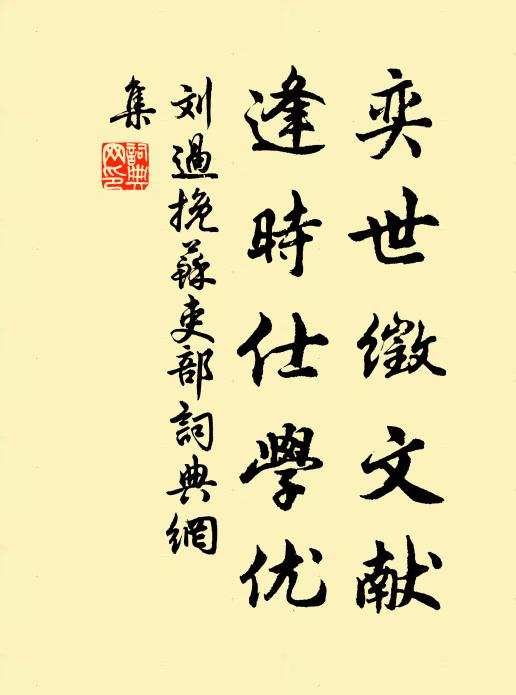 奕世徵文献
逢時仕學优
刘過挽蘇吏部詞典網
集
詞典
网印